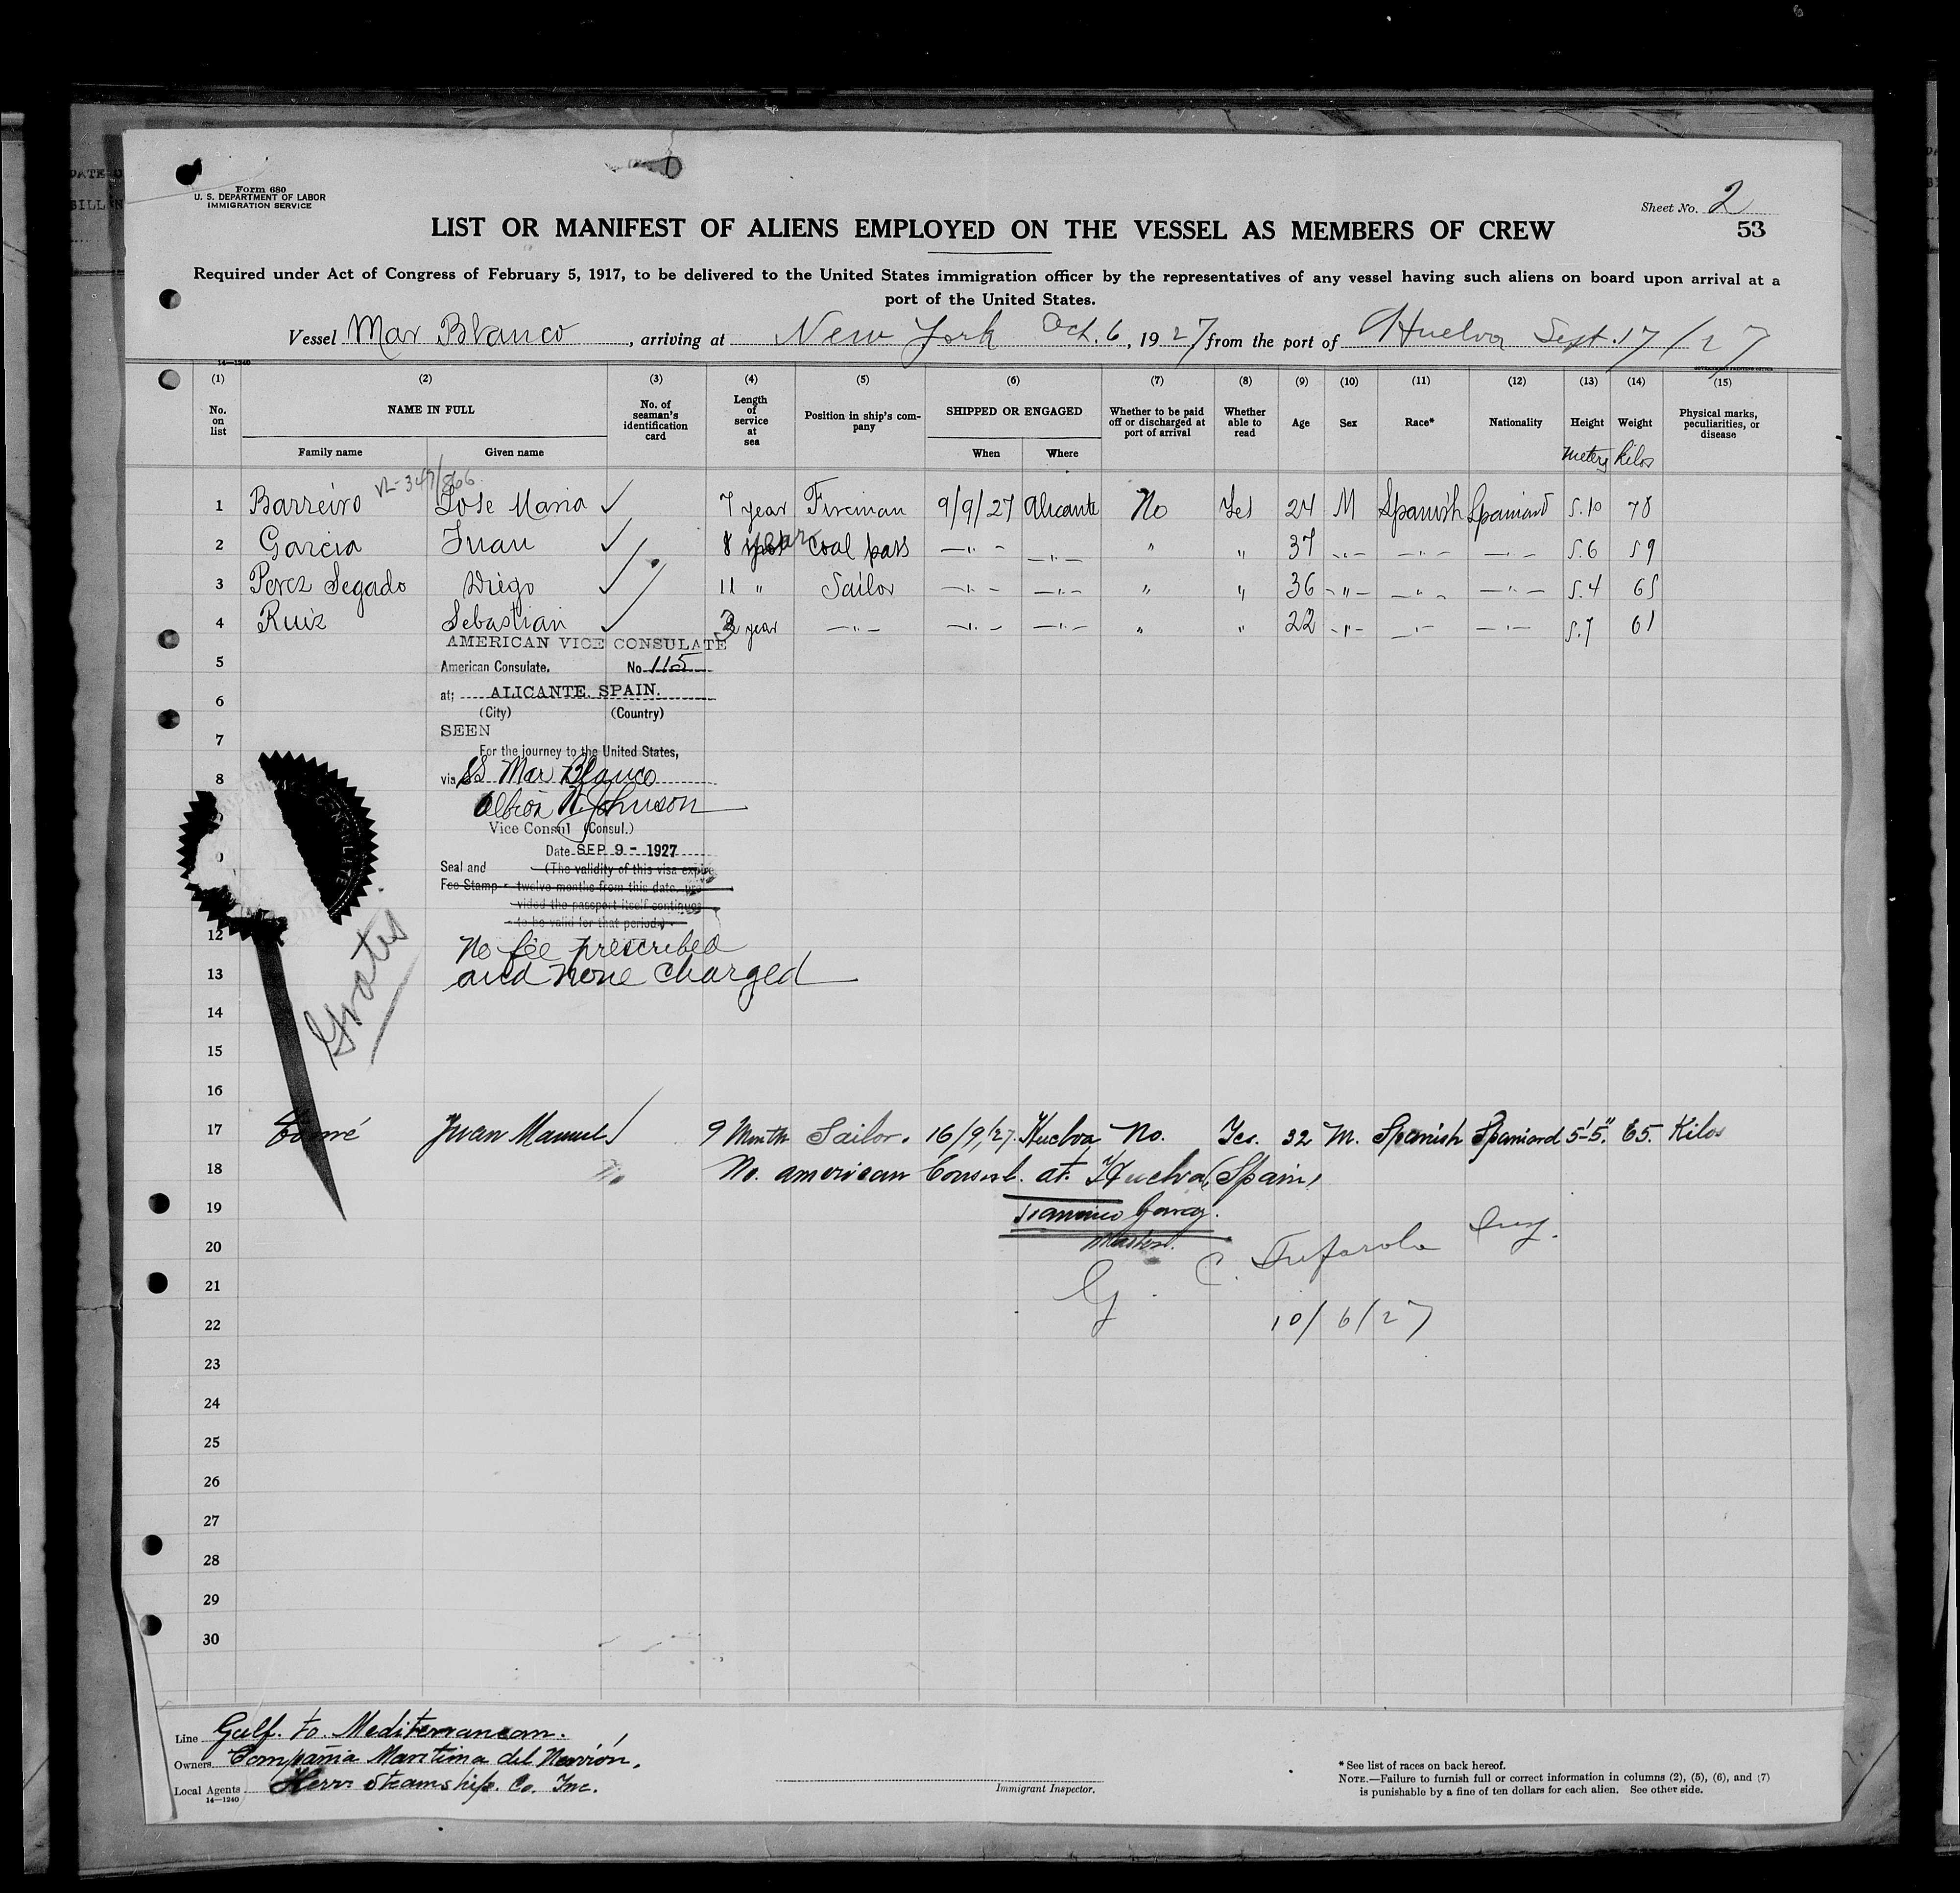 Form 680
U. S. DEPARTMENT OF LABOR
IMMIGRATION SERVICE
Sheet No. 2
53
LIST OR MANIFEST OF ALIENS EMPLOYED ON THE VESSEL AS MEMBERS OF CREW
Required under Act of Congress of February 5, 1917, to be delivered to the United States immigration officer by the representatives of any vessel having such aliens on board upon arrival at a
port of the United States.
Vessel Mar Blanco, arriving at New York Oct. 6, 1927 from the port of Huelva Sept. 17/27
14—1240
(1) (2) (3) (4) (5) (6) (7) (8) (9) (10) (11) (12) (13) (14) (15)
No. on list NAME IN FULL No. of seaman's identification card Length of service at sea Position in ship's company SHIPPED OR ENGAGED Whether to be paid off or discharged at port of arrival Whether able to read Age Sex Race* Nationality Height Weight Physical marks, peculiarities, or disease
Family name Given name When Where meters kilos
1 Barreiro Jose Maria ✓ 7 year Fireman 9/9/27 Alicante No Yes 24 M Spanish Spaniard 5.10 78
2 Garcia Juan ✓ 8 year coal pass —"— —"— " " 37 —"— —"— —"— 5.6 59
3 Perez Segado Diego ✓ 11 " Sailor —"— —"— " " 36 —"— —"— —"— 5.4 65
4 Ruiz Sebastian ✓ year —"— —"— —"— " " 22 —"— —"— —"— 5.7 61
AMERICAN VICE CONSULATE
5 American Consulate, No 115
6 at; ALICANTE, SPAIN.
(City) (Country)
7 SEEN
For the journey to the United States,
8 via SS Mar Blanco
Albion W Johnson
Vice Consul (Consul.)
Date SEP 9 - 1927
Seal and (The validity of this visa expires
Fee Stamp twelve months from this date, pro
vided the passport itself continues
to be valid for that period).
12 No fee prescribed
13 and none charged
Gratis
14
15
16
17 Juan Manuel ✓ 9 Month Sailor. 16/9/27. Huelva No. Yes. 32 M. Spanish Spaniard 5'-5". 65. Kilos
18 No. american Consul. at. Huelva (Spain)
19
Master.
20
21
22 10/6/27
23
24
25
26
27
28
29
30
Line Gulf. to. Mediterranean.
Owners Compañia Maritima del Nervión.
Local Agents Steamship. Co. Inc.
14—1240
Immigrant Inspector.
* See list of races on back hereof.
NOTE.—Failure to furnish full or correct information in columns (2), (5), (6), and (7)
is punishable by a fine of ten dollars for each alien. See other side.